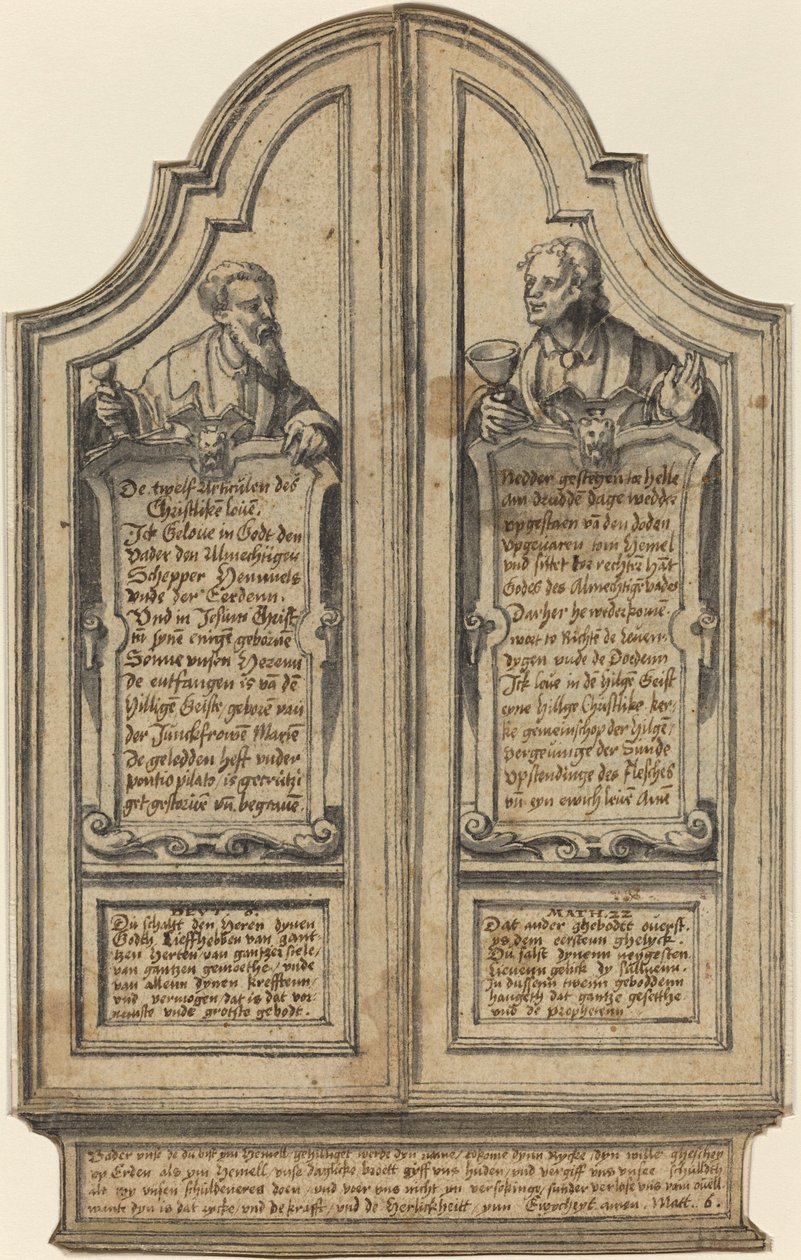 De twelf Articulen des
Christliken loue͂.
Ick Geloue in Godt den
Vader den Almechtigen
Schepper Hemmels
vnde der Eerdenn.
Vnd in Jesum Christ
synē enigē gebornē
Sonne vnsen Herenn
De entfangen is vā dē
Hilligē Geiste, geborē van
der Junckfrowen Marien
De geledden heft vnder
pontio pilato, is gecrutzi
get gestoruē vn̄ begrauē.
Nedder gestegen toe Helle
Am drudden dage wedder
vpgestaen vā den doden
vpgeuaren tom Hemel
vnd sittet toe rechter Hāt
Godes des Almechtigē vaders
Dar her he wederkomē.
woert to Richtē de Leuen-
dygen vnde de Doedenn
Ick loue in dē Hilgē Geist
eyne Hillige Christlike ker-
ke gemeinschop der Hilgē,
vergeuinge der Sunde
vpstendinge des Flesches
vn̄ eyn ewich leuē Amē
DEVT. 6.
Du schalt den Heren dynen
Godth Lieffhebben van gant-
tzen Herten, van gantzer siele,
van gantzen gemoethe, vnde
van allenn dynen kreffteun,
vnd vermogen, dat is dat vor-
nemste vnde grotste gebodt.
MATH. 22
Dat ander ghebodet ouerst.
ys dem eerstenn ghelyck.
Du salst dynenn neygesten
Lieuenn gelick dy sulluenn.
In dussenn twenn geboddenn
hangeth dat gantze gesetthe
vnd de Prophetenn
Vader vnse de du bist ynn Hemell, gehilliget werde dyn name, tokome dynn Rycke, dyn wille gheschey
vp Erden als ynn Hemell, vnse daglicke broett gyff vns huden, vnd vergiff vns vnsee schuldth
als wy vnsen schuldeneres doen, vnd voer vns nicht yn versokinge, sunder verlose vns vam ouell.
wante dyn is dat rycke, vnd de krafft, vnd de Herlickheitt, ynn Ewycheyt amen. Matt. 6.